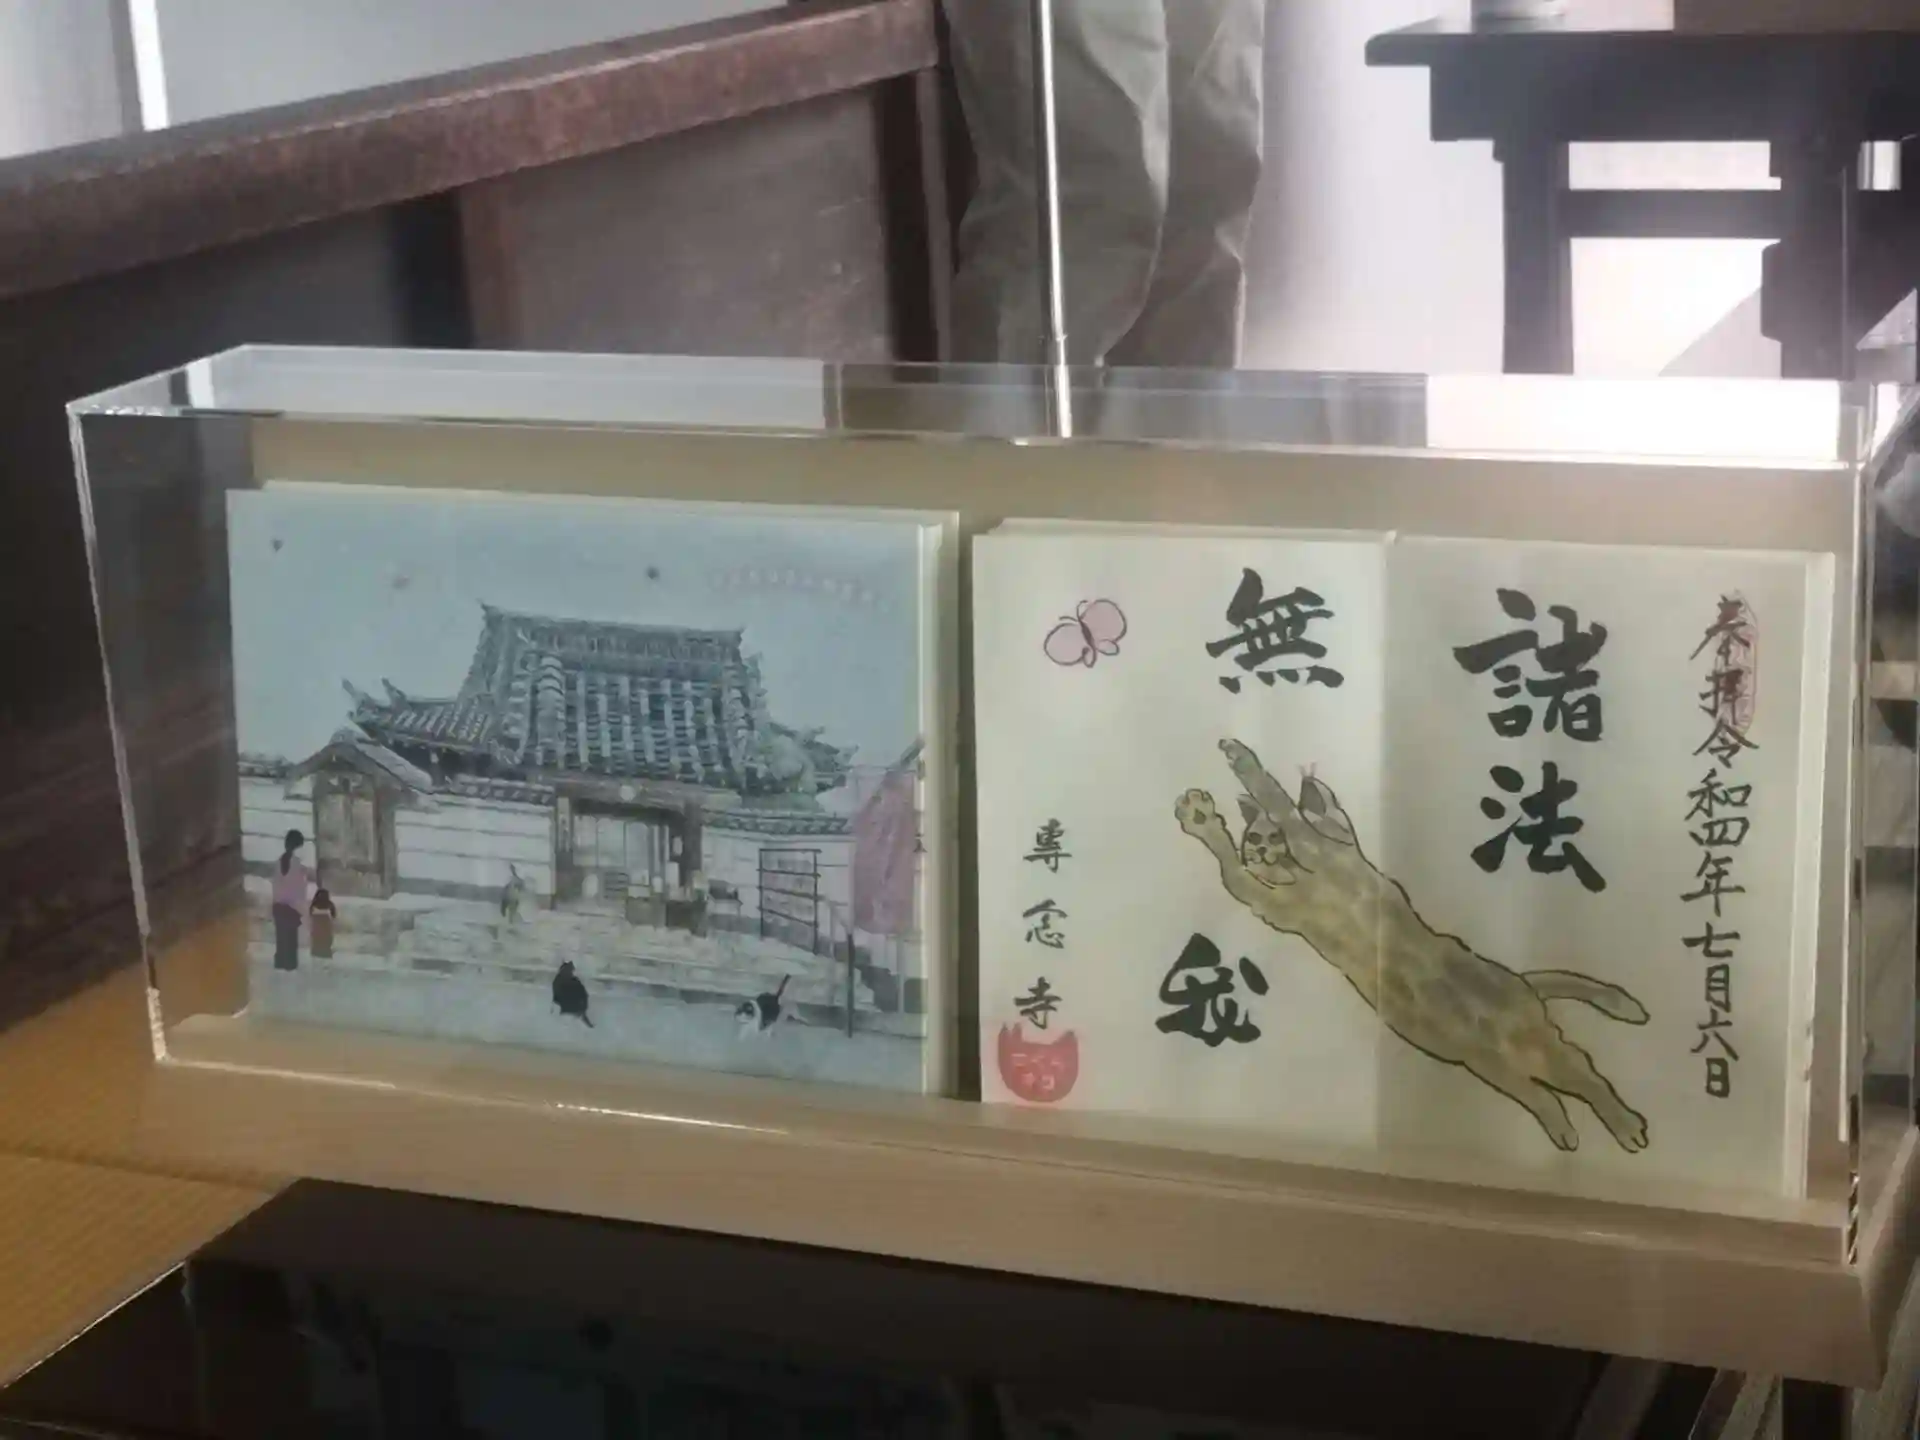 奉拝令和四年七月六日
諸法
無我
專念寺